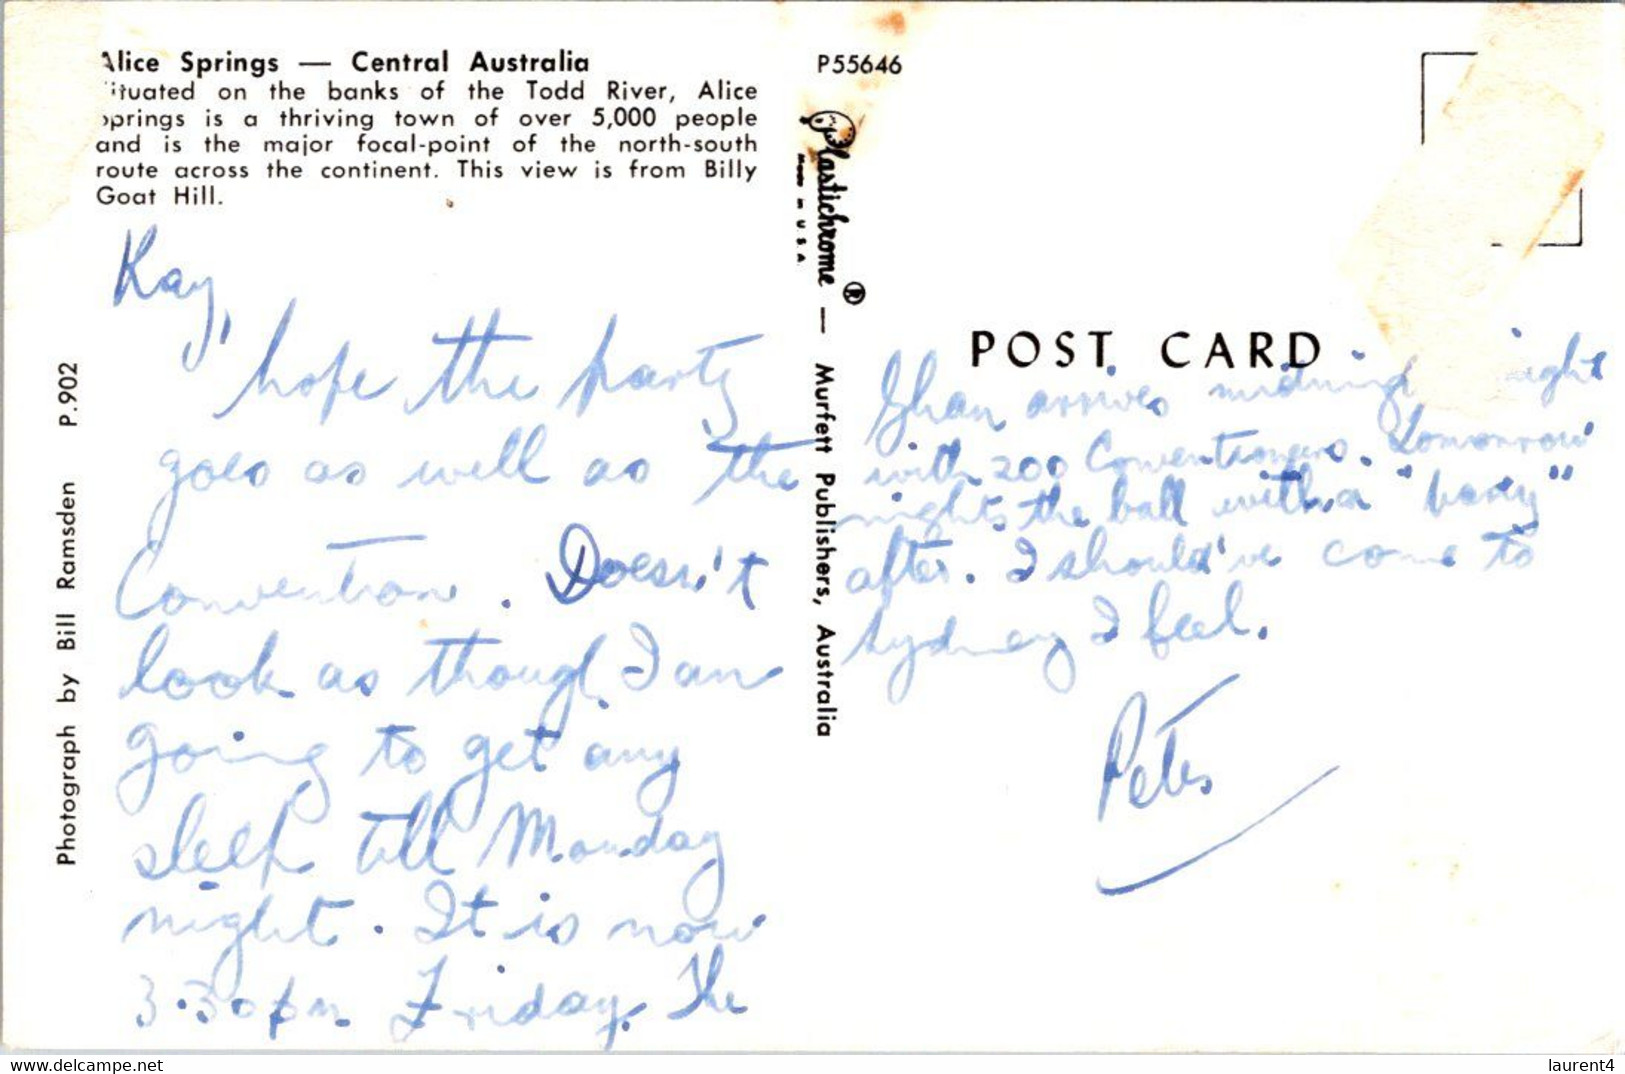 Alice Springs — Central Australia
ituated on the banks of the Todd River, Alice
prings is a thriving town of over 5,000 people
and is the major focal-point of the north-south
route across the continent. This view is from Billy
Goat Hill.
Kay,
hope the party
goes as well as the
Convention. Doesn't
look as though I am
going to get any
sleep till Monday
night. It is now
3.30pm Friday. The
Photograph by Bill Ramsden P.902
P55646
Plastichrome ® — Murfett Publishers, Australia
Made in U.S.A.
POST CARD
Ghan arrives night
with 200 Conventioners. Tomorrow
nights the ball with a
after. I should've come to
Sydney I feel.
Peter
laurent4